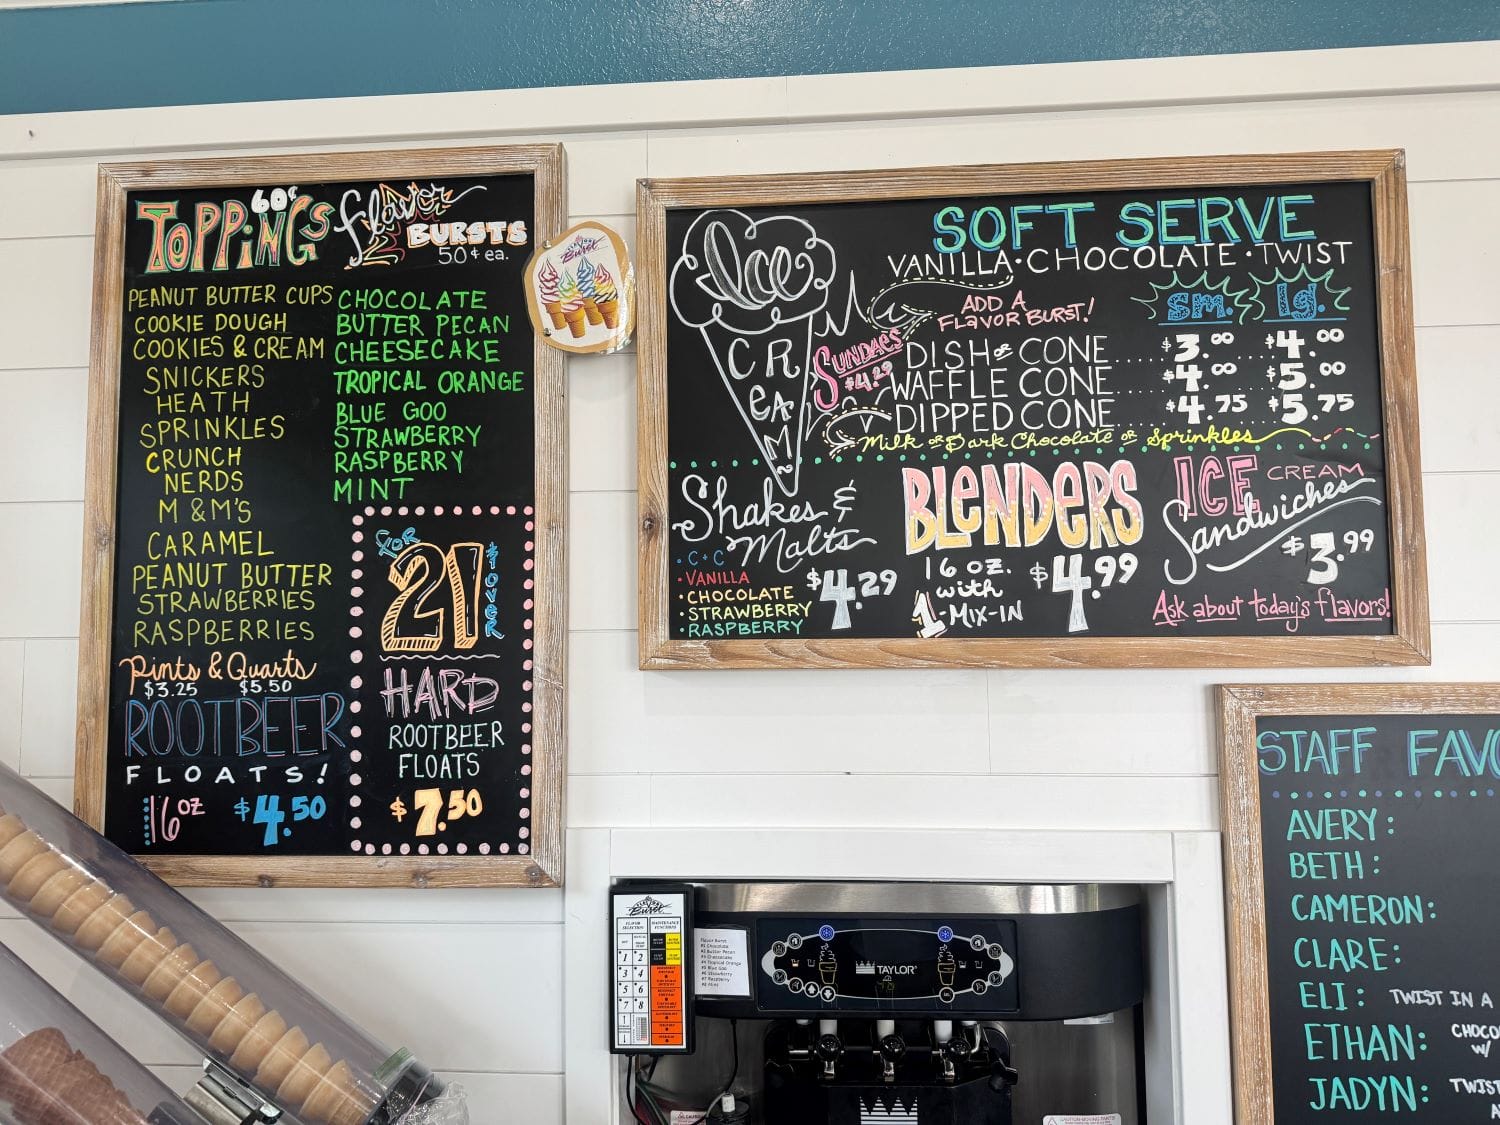 TOPPINGS 60¢
PEANUT BUTTER CUPS
COOKIE DOUGH
COOKIES & CREAM
SNICKERS
HEATH
SPRINKLES
CRUNCH
NERDS
M & M'S
CARAMEL
PEANUT BUTTER
STRAWBERRIES
RASPBERRIES
Pints & Quarts
$3.25 $5.50
ROOTBEER
FLOATS!
16 OZ $4.50
flavor
BURSTS
50¢ ea.
CHOCOLATE
BUTTER PECAN
CHEESECAKE
TROPICAL ORANGE
BLUE GOO
STRAWBERRY
RASPBERRY
MINT
for
21
& over
HARD
ROOTBEER
FLOATS
$7.50
Burst
Ice
CREAM
SOFT SERVE
VANILLA · CHOCOLATE · TWIST
ADD A
FLAVOR BURST!
sm. lg.
SUNDAES
$4.29
DISH or CONE..... $3.00 $4.00
WAFFLE CONE..... $4.00 $5.00
DIPPED CONE..... $4.75 $5.75
Milk or Dark Chocolate or Sprinkles
Shakes &
Malts
· C + C
· VANILLA
· CHOCOLATE
· STRAWBERRY
· RASPBERRY
$4.29
BLENDERS
16 OZ.
with
1-MIX-IN
$4.99
ICE CREAM
Sandwiches
$3.99
Ask about today's flavors!
STAFF FAVO
AVERY:
BETH:
CAMERON:
CLARE:
ELI: TWIST IN A
ETHAN: CHOCO
W/
JADYN: TWIST
Burst
FLAVOR SELECTION
MAINTENANCE FUNCTIONS
1 2
3 4
5 6
7 8
Flavor Burst
#1 Chocolate
#2 Butter Pecan
#3 Cheesecake
#4 Tropical Orange
#5 Blue Goo
#6 Strawberry
#7 Raspberry
#8 Mint
TAYLOR